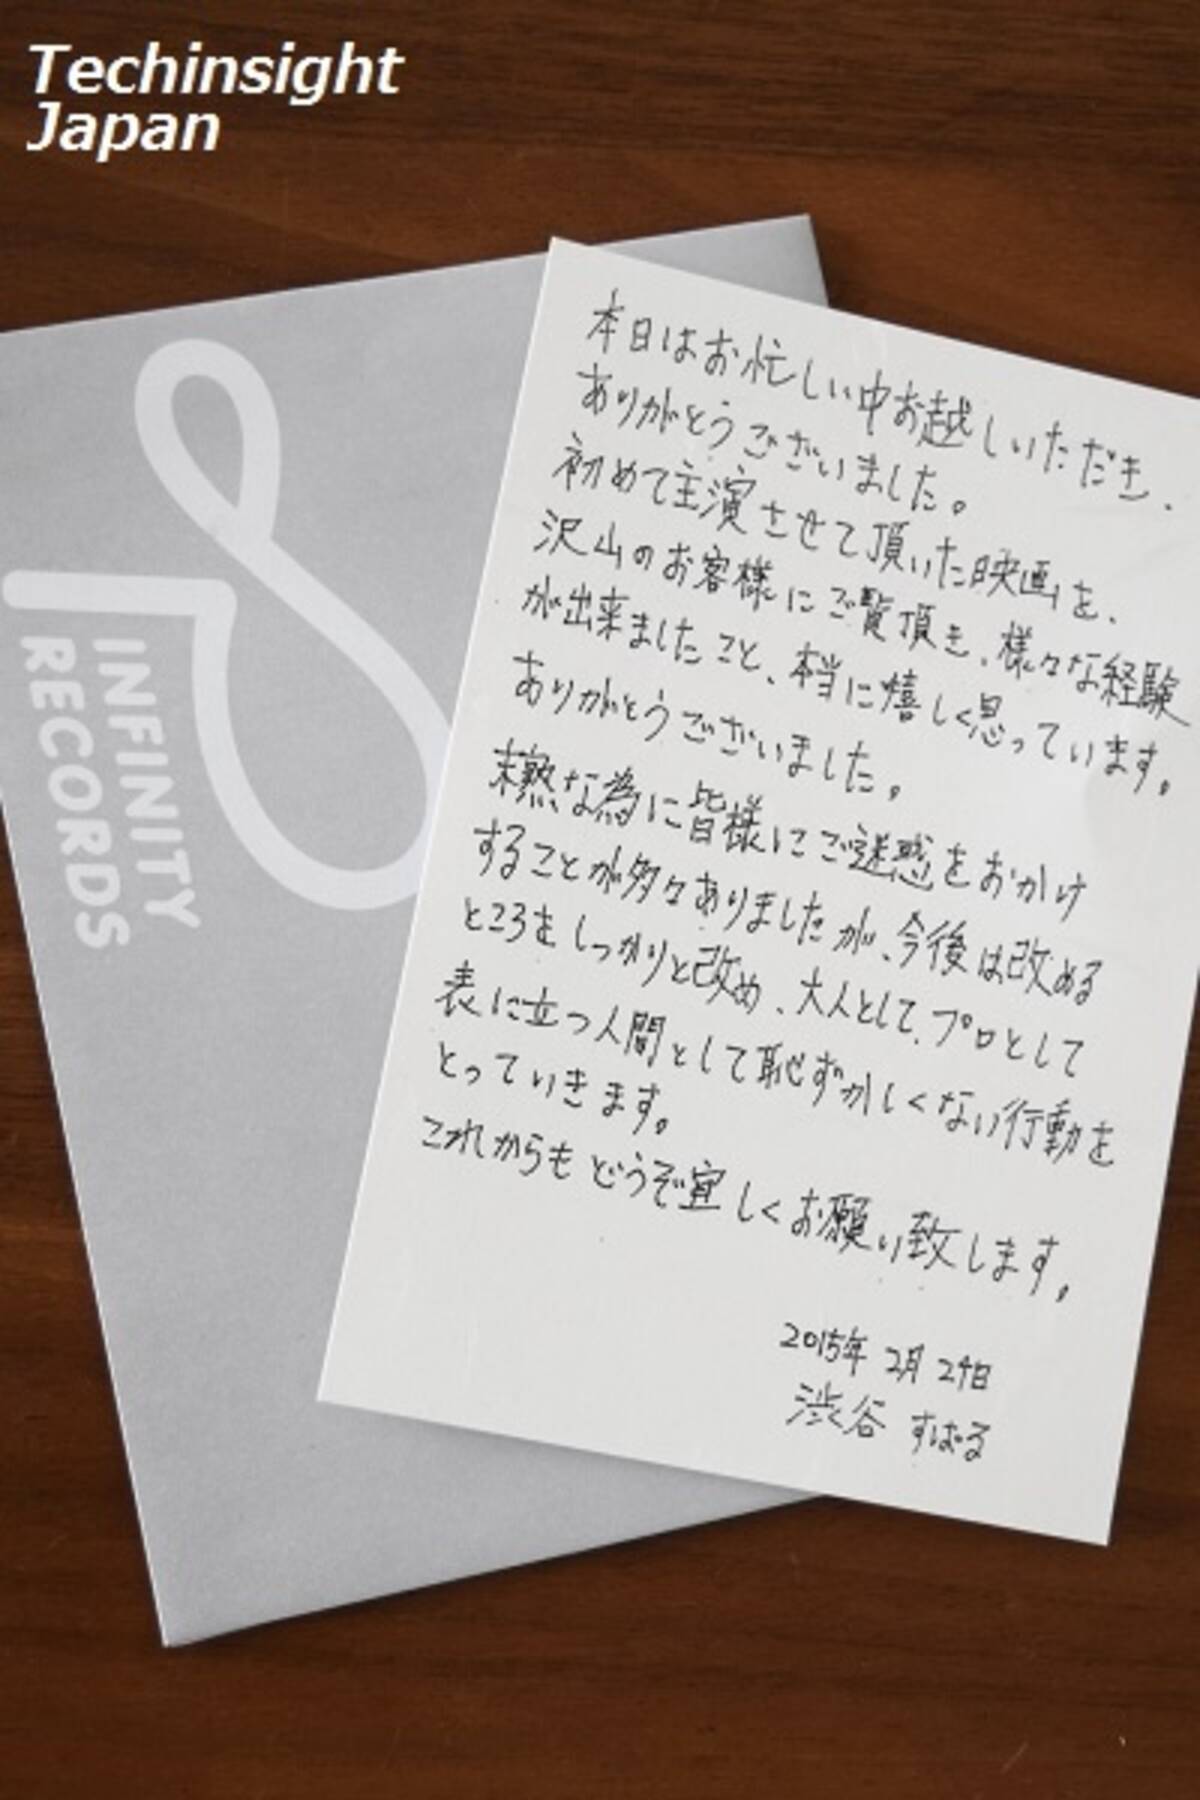 Techinsight
Japan
INFINITY
RECORDS
本日はお忙しい中お越しいただき、
ありがとうございました。
初めて主演させて頂いた映画を、
沢山のお客様にご覧頂き、様々な経験
が出来ましたこと、本当に嬉しく思っています。
ありがとうございました。
未熟な為に皆様にご迷惑をおかけ
することが多々ありましたが、今後は改める
ところを、しっかりと改め、大人として、プロとして
表に立つ人間として恥ずかしくない行動を
とっていきます。
これからもどうぞ宜しくお願い致します。
2015年 2月 24日
渋谷 すばる